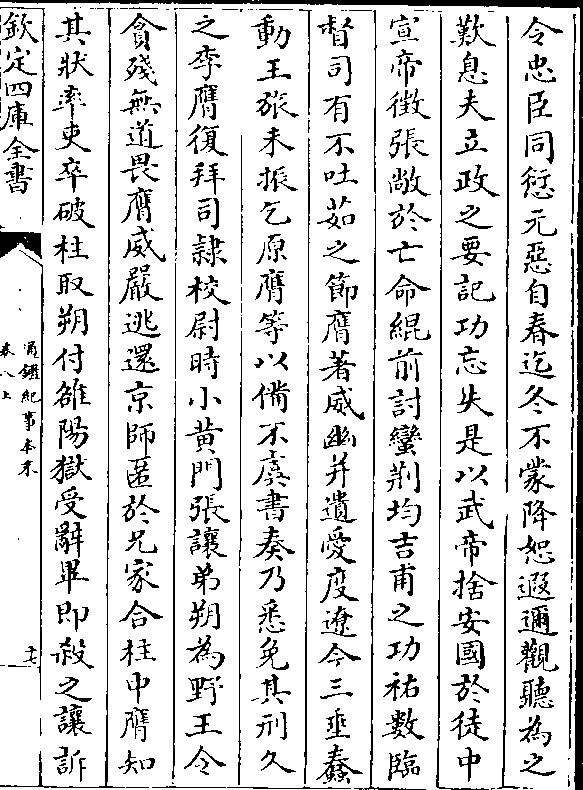 令忠臣同愆元惡自春迄冬不蒙降恕遐邇觀聽為之
歎息夫立政之要記功忘失是以武帝捨安國於徒中
宣帝徵張敞於亡命緄前討蠻荆均吉甫之功祐數臨
督司有不吐茹之節膺著威幽并遺愛度遼今三垂蠢
動王旅未振乞原膺等以備不虞書奏乃悉免其刑久
之李膺復拜司隸校尉時小黄門張讓弟朔為野王令
貪殘無道畏膺威嚴逃還京師匿於兄家合柱中膺知
其狀率吏卒破柱取朔付雒陽獄受辭畢即殺之讓訴
欽定四庫全書
通鑑紀事本末
卷八上
十七